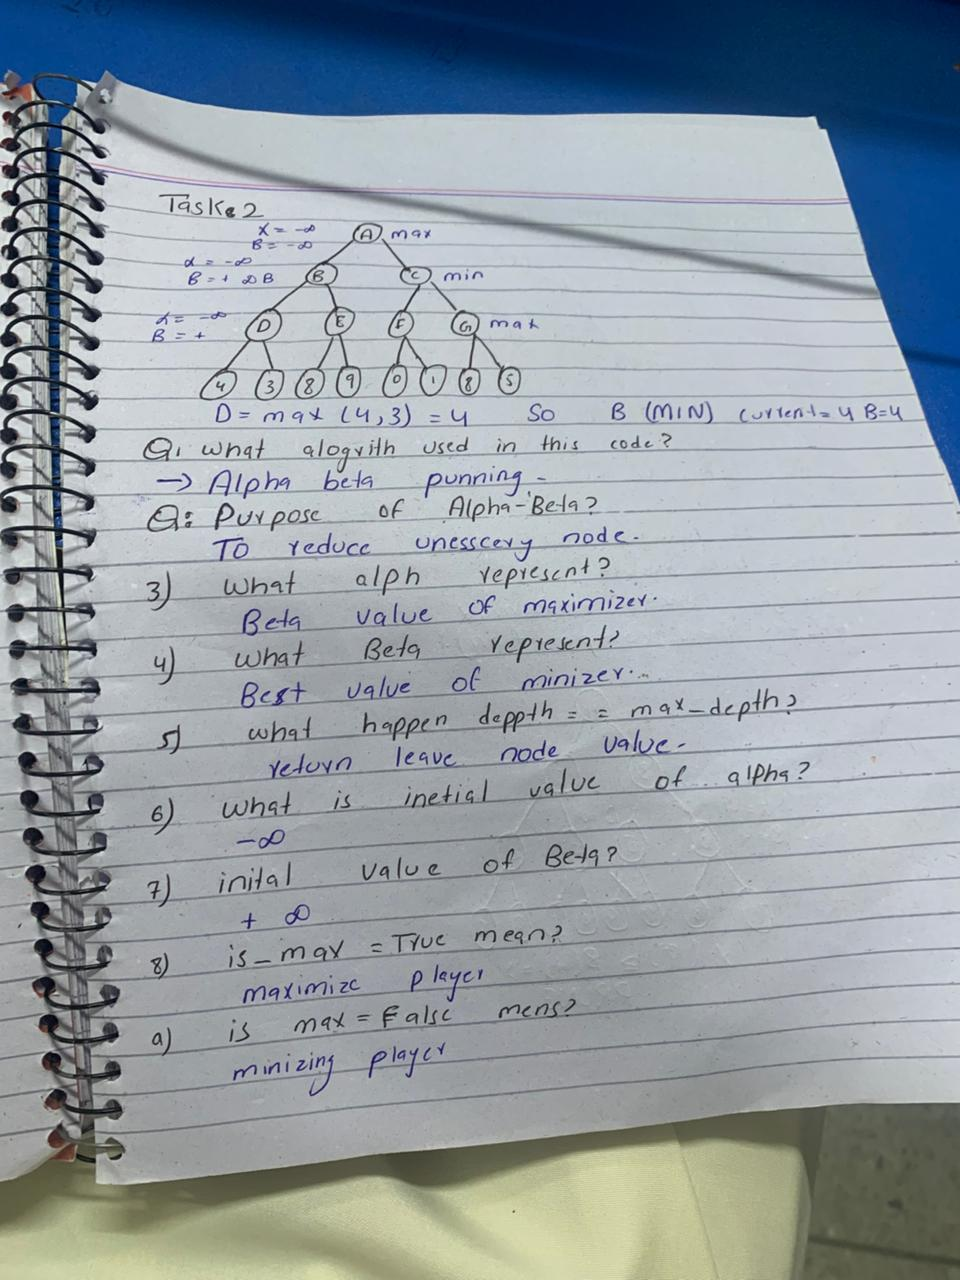 Task 2
α = -∞
B = -∞
A max
α = -∞
B = + ∞ B
B C min
α = -∞
B = +
D E F G max
4 3 8 9 0 1 8 5
D = max (4,3) = 4 So B (MIN) current = 4 B=4
Q: what alogrith used in this code?
→ Alpha beta punning -
Q: Purpose of Alpha-Beta?
To reduce unesscery node.
3) what alph represent?
Beta value of maximizer.
4) what Beta represent?
Best value of minizer..
5) what happen deppth = = max_depth?
return leave node value.
6) what is inetial value of alpha?
-∞
7) inital value of Beta?
+ ∞
8) is_max = True mean?
maximize player
9) is max = False mens?
minizing player